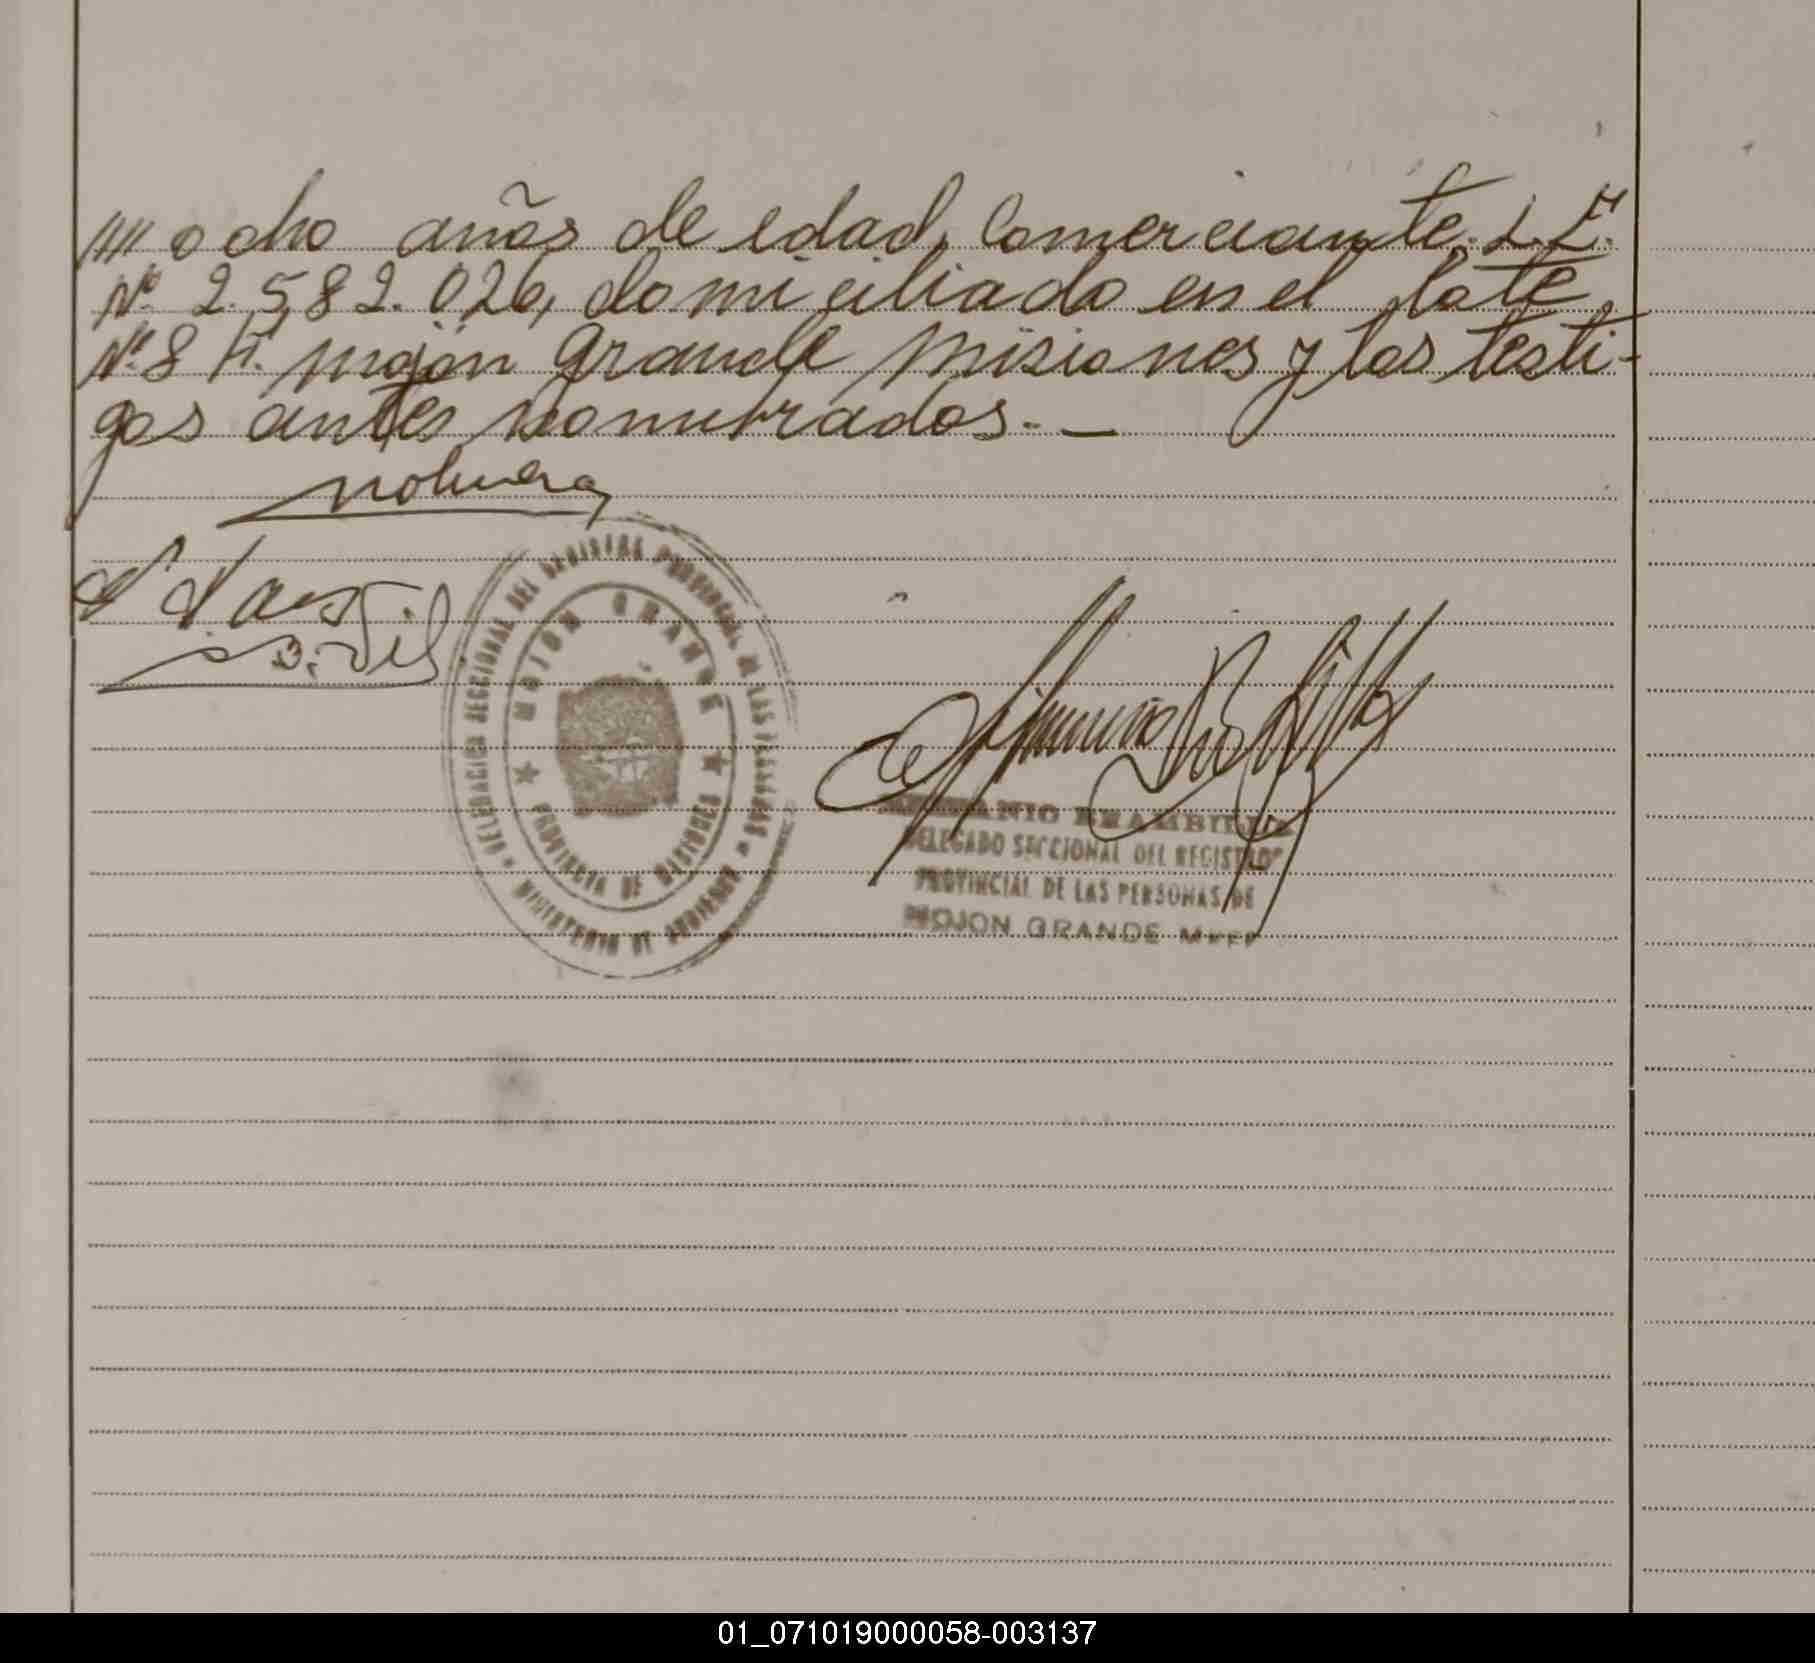 //// ocho años de edad, Comerciante. L. E.
Nº 2.582.026, domiciliado en el lote
Nº 8 A. mojón grande Misiones y los testi-
gos antes nombrados. -
DELEGACION SECCIONAL DEL REGISTRO PROVINCIAL DE LAS PERSONAS
MOJON GRANDE
PROVINCIA DE MISIONES
MINISTERIO DE GOBIERNO
BRAMBILLA
DELEGADO SECCIONAL DEL REGISTRO
PROVINCIAL DE LAS PERSONAS DE
MOJON GRANDE
01_071019000058-003137